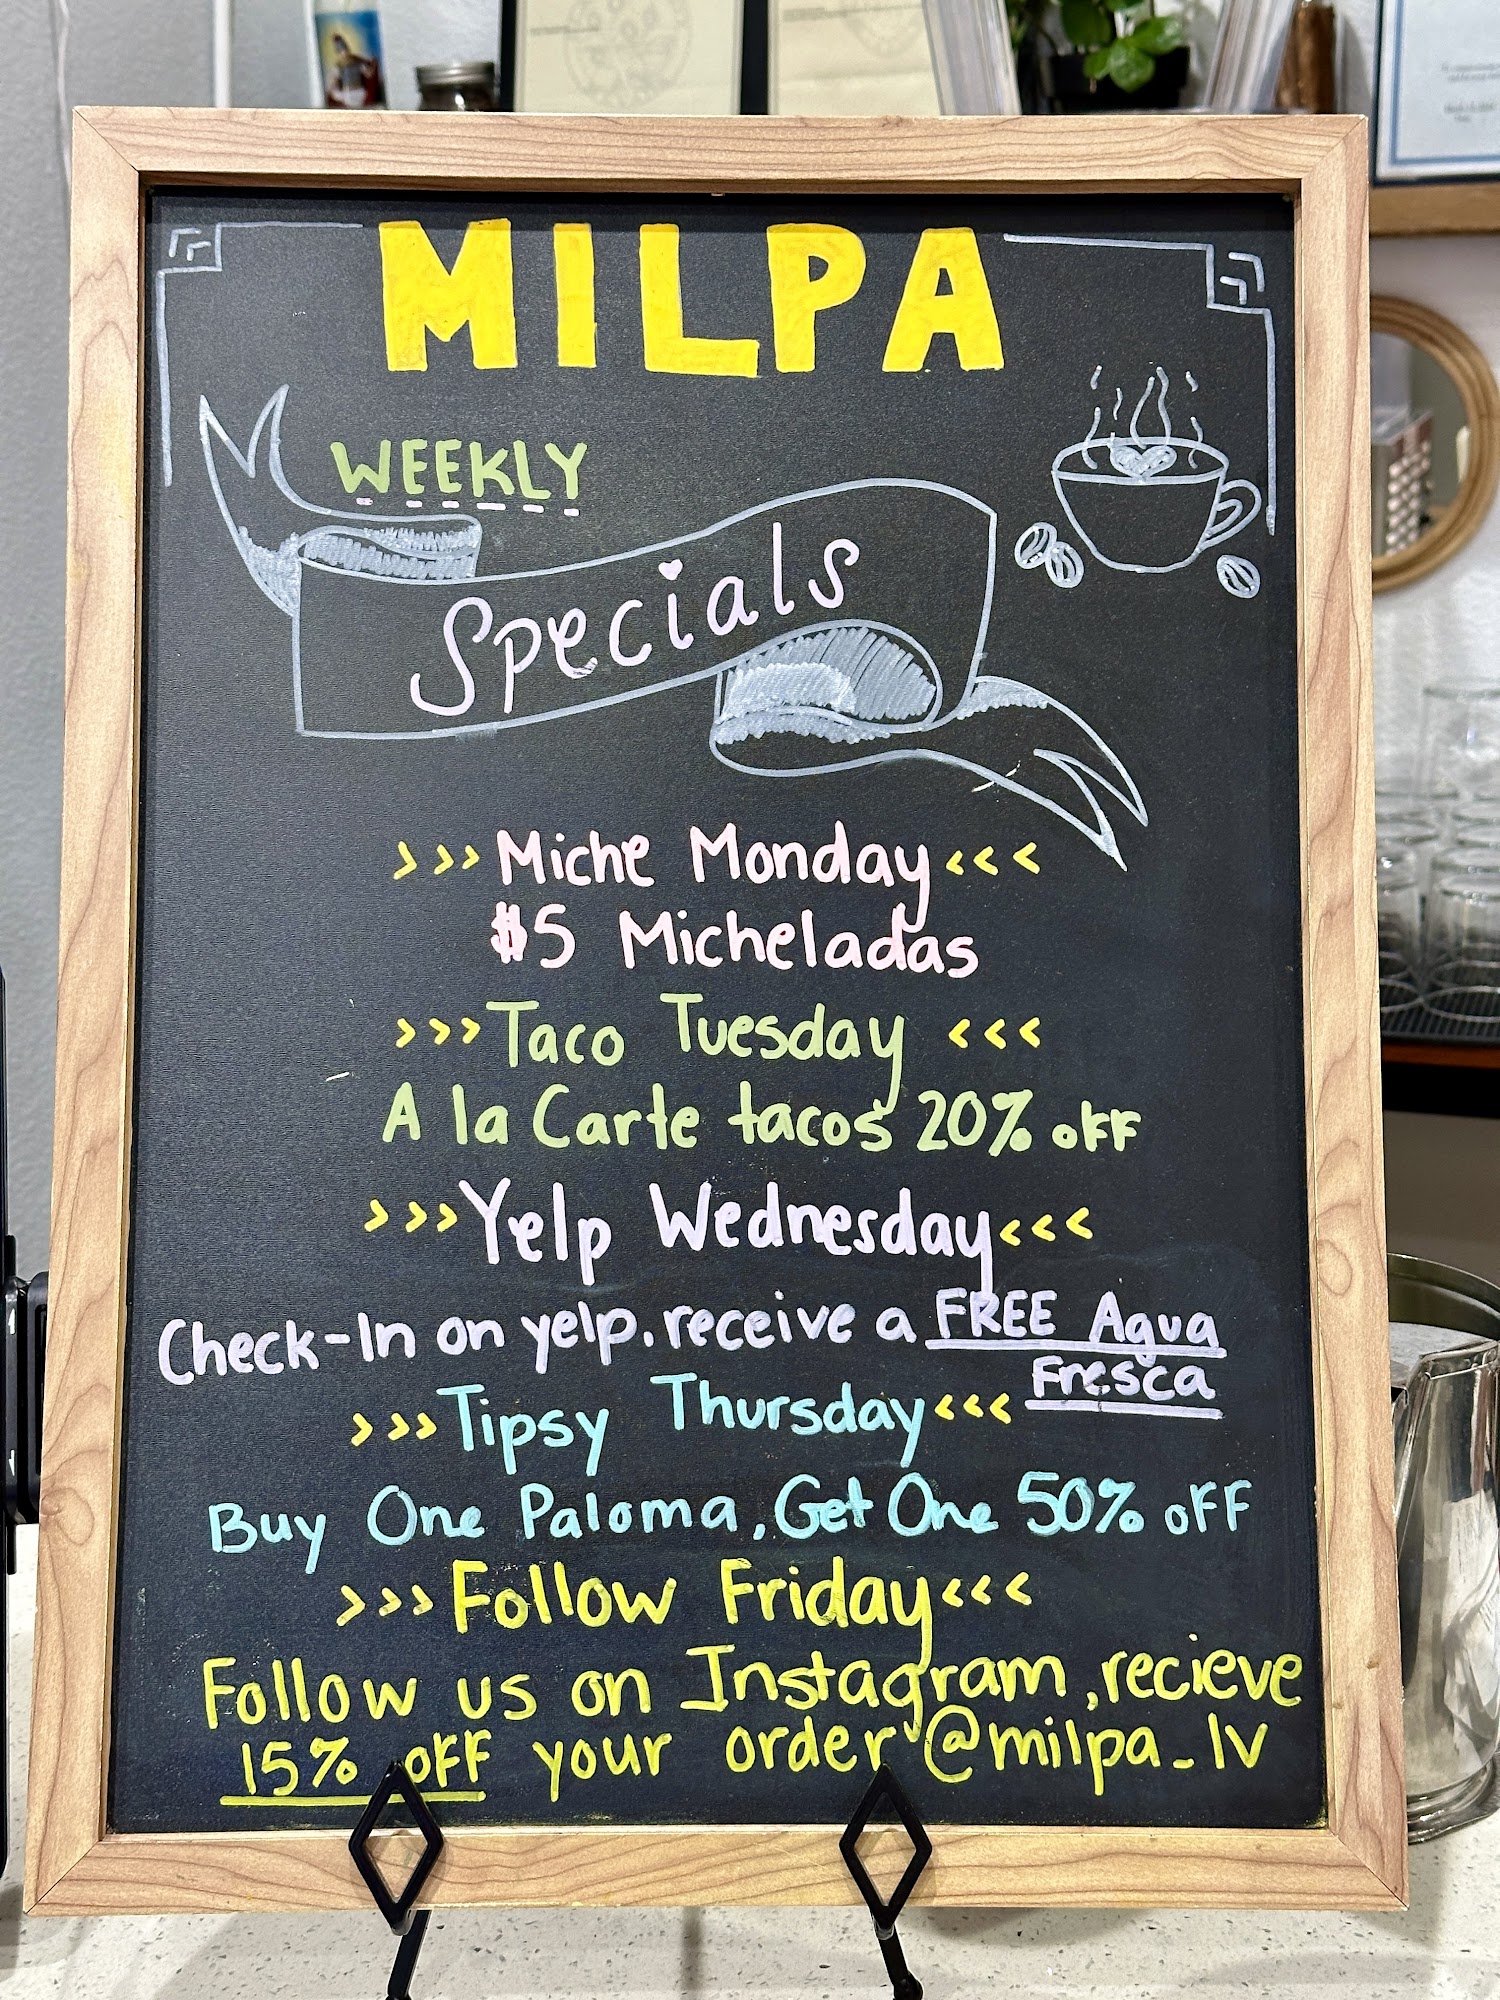 MILPA
WEEKLY
Specials
>>> Miche Monday <<<
$5 Micheladas
>>> Taco Tuesday <<<
A la Carte tacos 20% off
>>> Yelp Wednesday <<<
Check-In on yelp. receive a FREE Agua
Fresca
>>> Tipsy Thursday <<<
Buy One Paloma, Get One 50% off
>>> Follow Friday <<<
Follow us on Instagram, recieve
15% off your order @milpa_lv